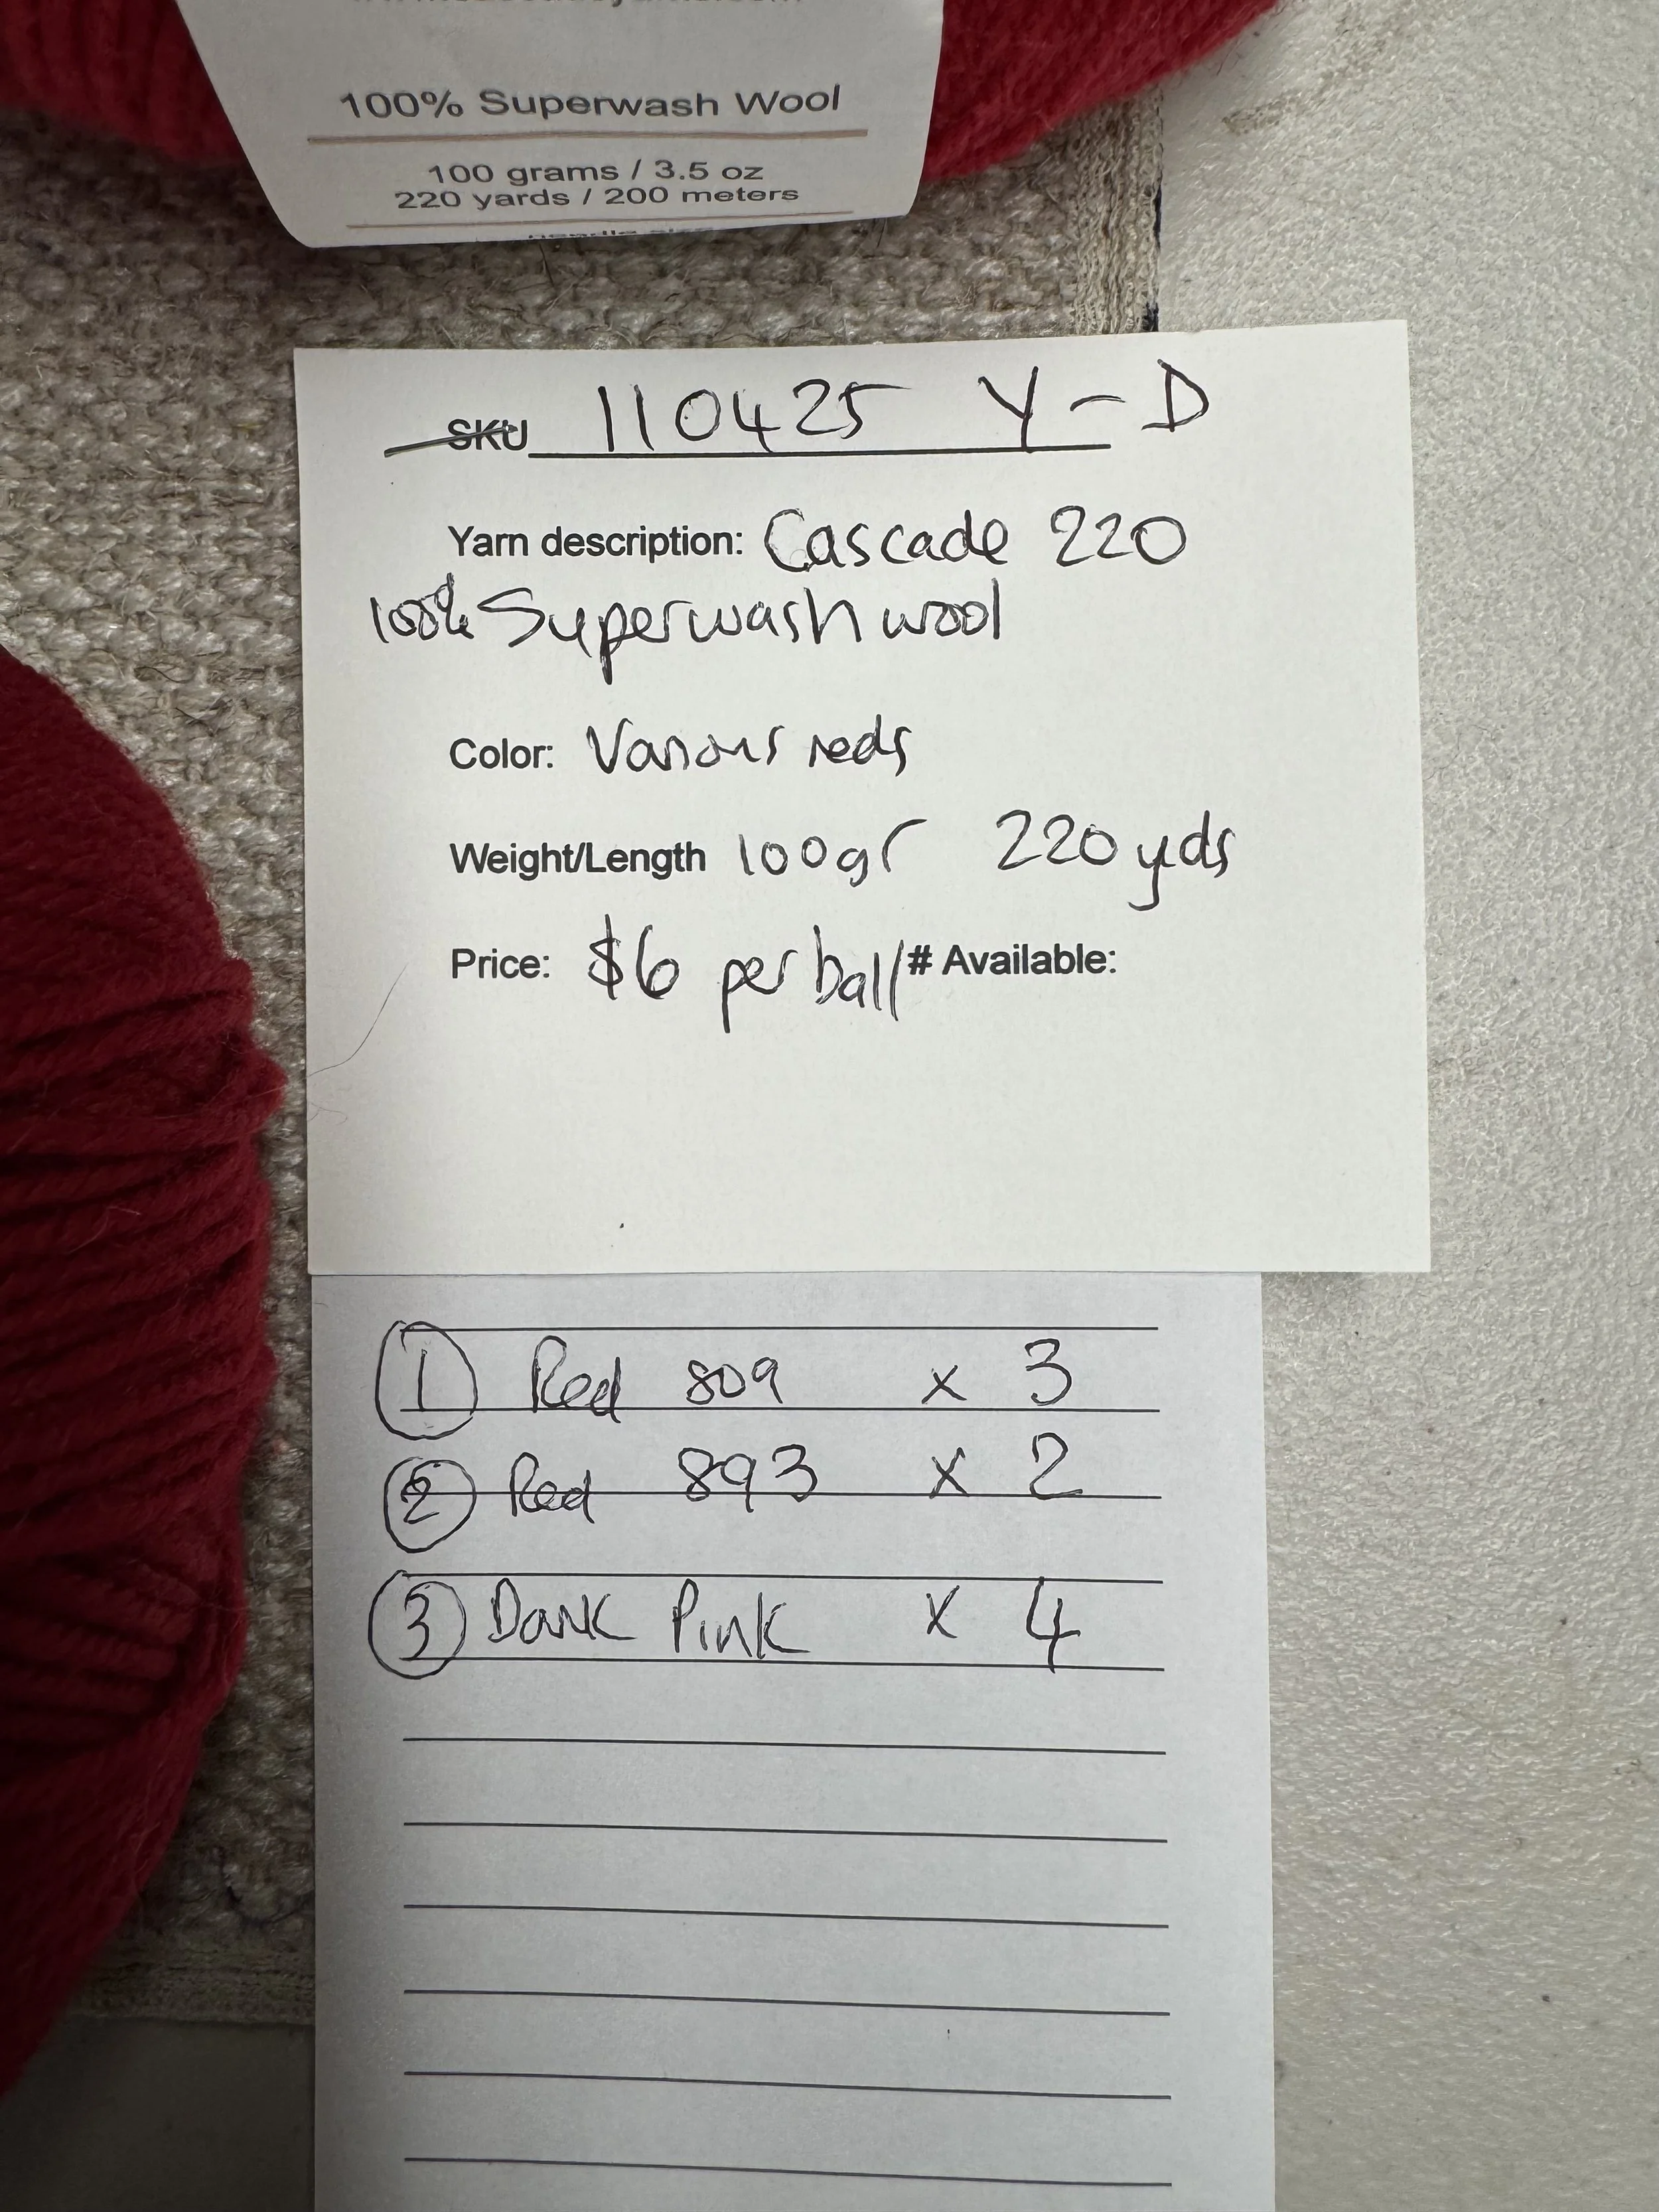 100% Superwash Wool
100 grams / 3.5 oz
220 yards / 200 meters
needle size
SKU 110425 Y-D
Yarn description: Cascade 220
100% Superwash wool
Color: Various reds
Weight/Length 100gr 220 yds
Price: $6 per ball # Available:
1 Red 809 x 3
2 Red 893 x 2
3 Dark Pink x 4